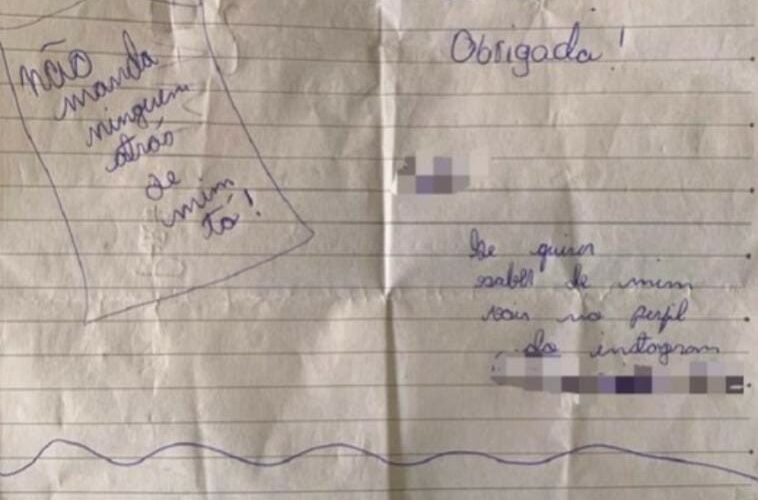 não
manda
ninguem
atrás
de
mim
tá!
Obrigada!
Se quiser
saber de mim
vai no perfil
do instagram